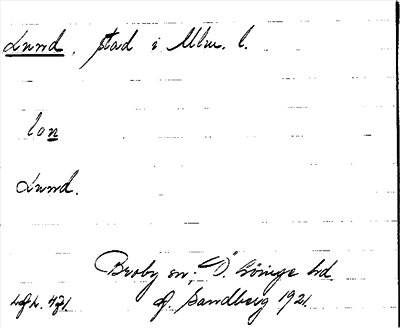 Lund, stad i Mlm. l.
lon
Lund.
Broby sn. Ö. Göinge hd
Sandberg 1921.